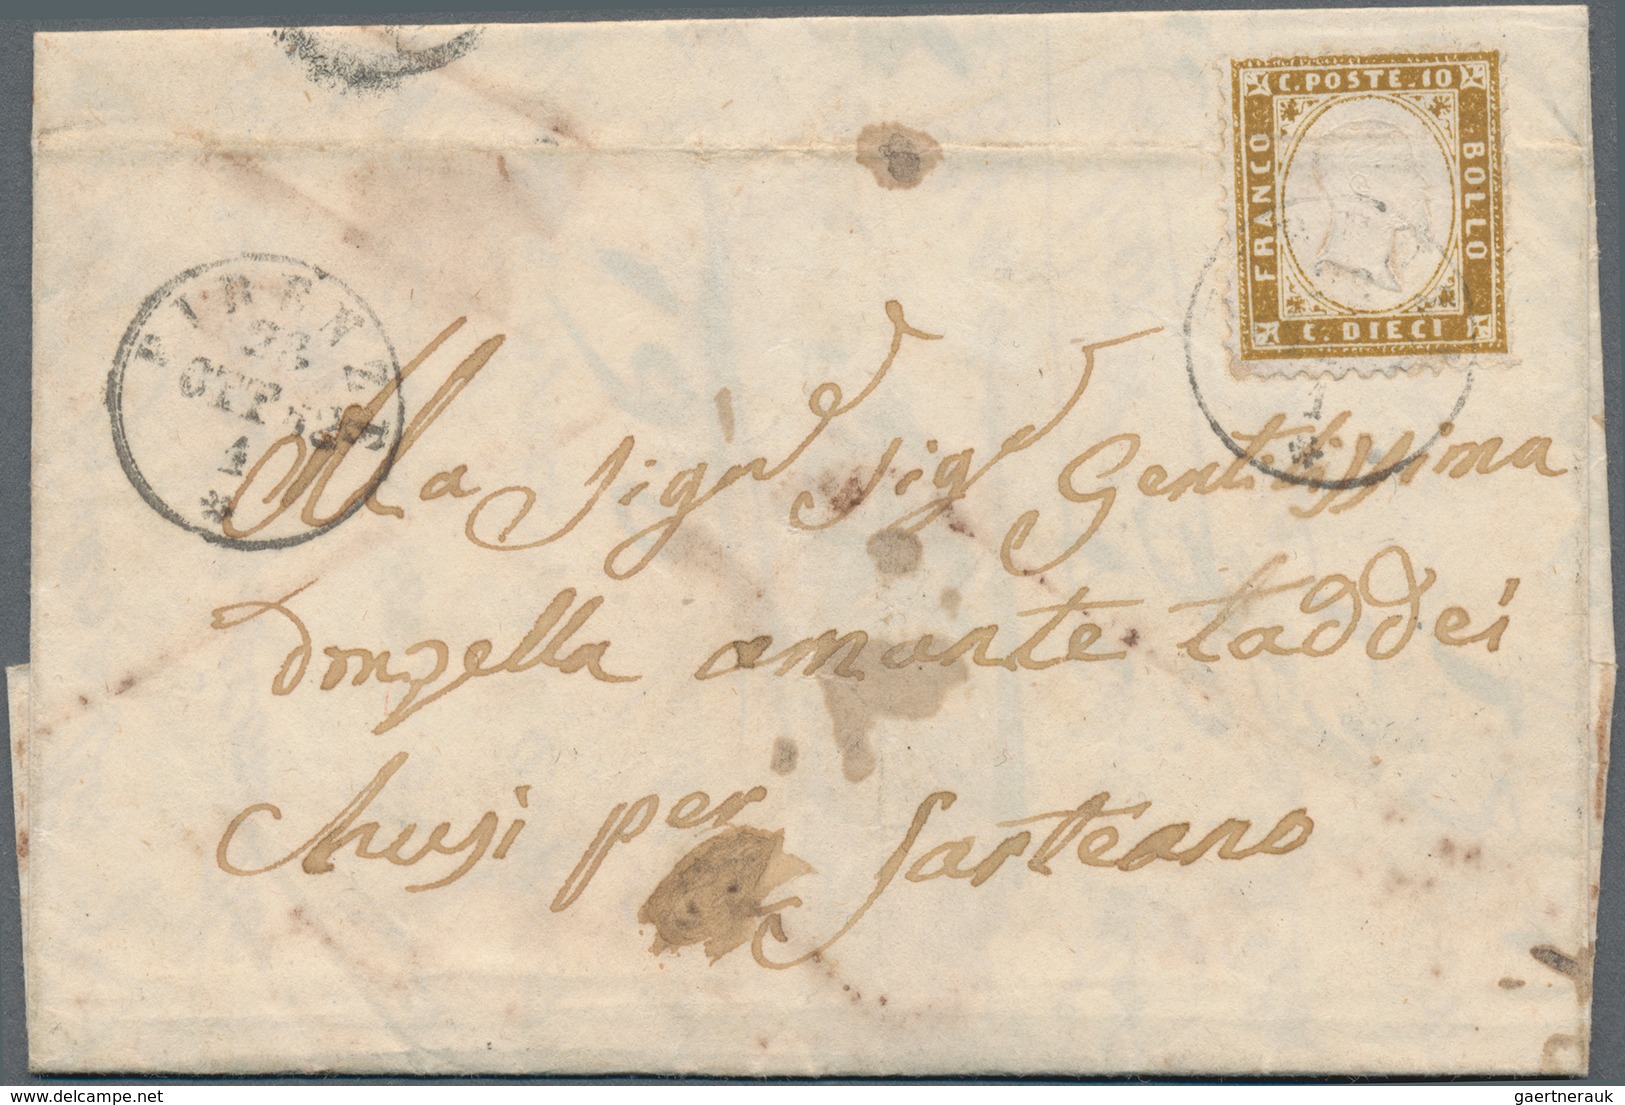 C. POSTE. 10
FRANCO
BOLLO
C. DIECI
FIRENZE
OTT
1
Alla Sigra Sigra Gentilissima
Donzella amante taddei
Chiusi per
Sarteano
delcampe.net
gaertnerauk